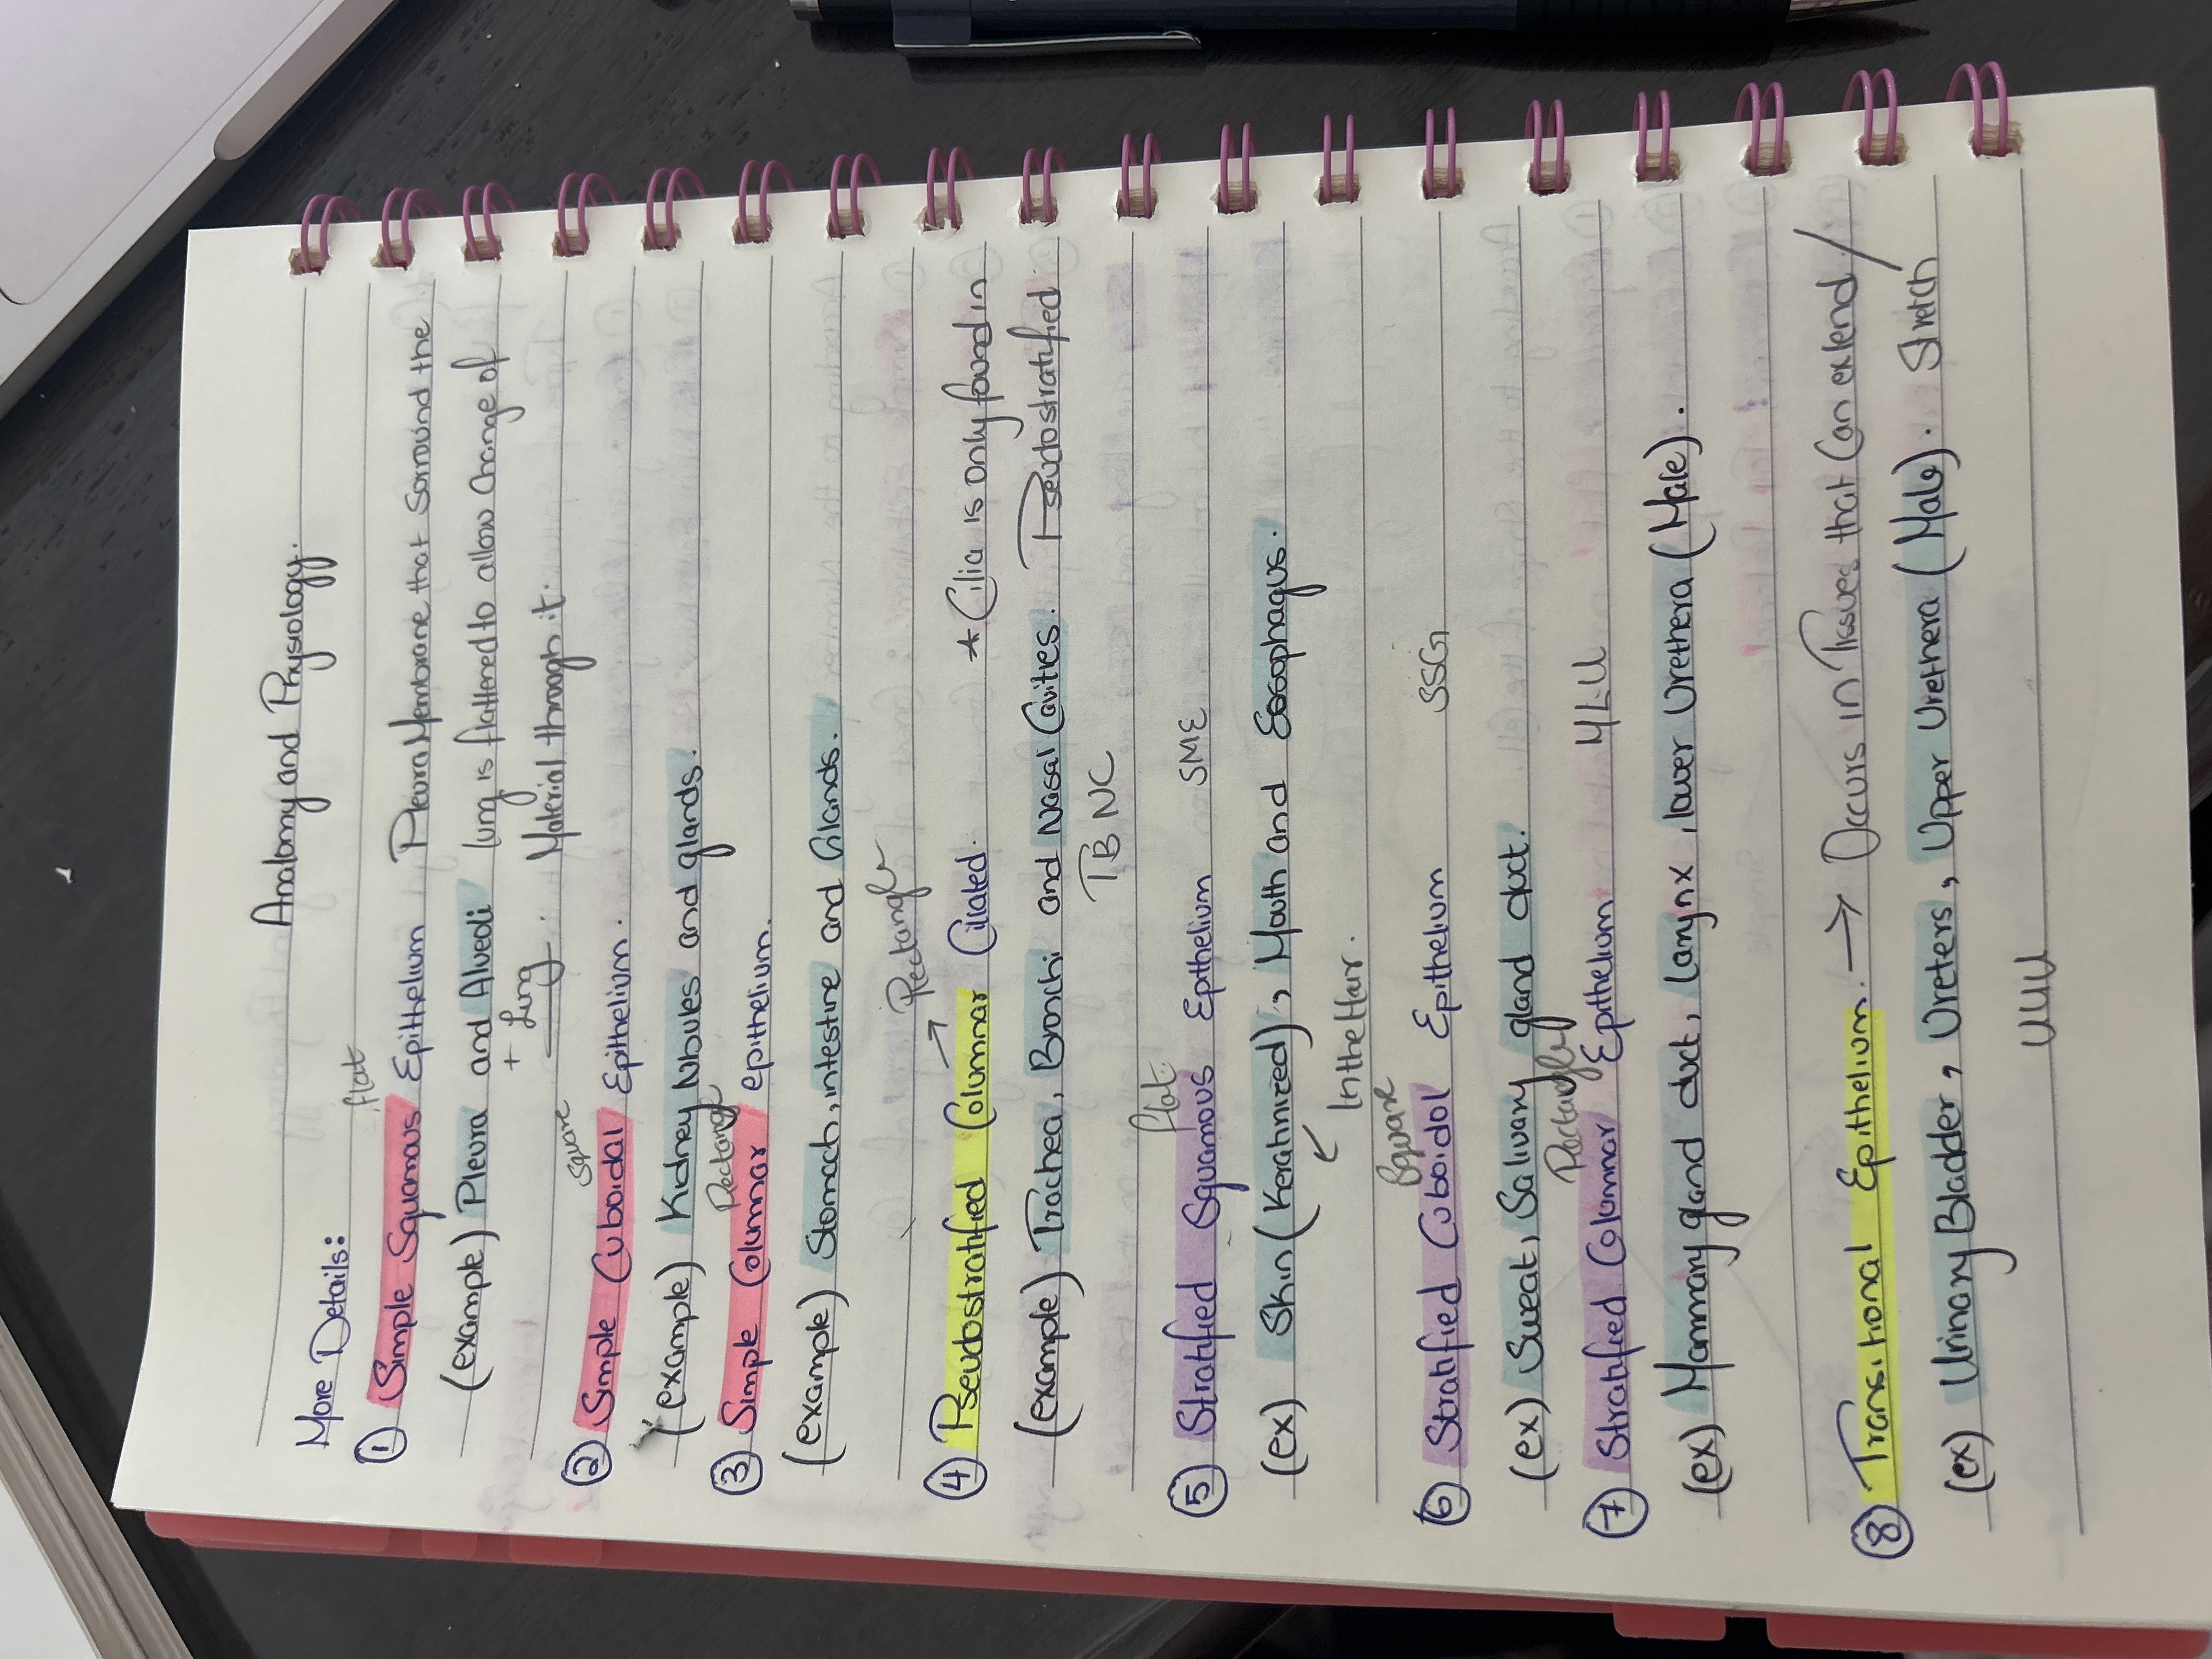 Anatomy and Physiology.
More Details:
flat
① Simple Squamous Epithelium Pleura Membrane that Sorround the
(example) Pleura and Alveoli lung is flattened to allow Change of
+ Lung . Material through it.
square
② Simple Cuboidal Epithelium.
(example) Kidney and glands.
Rectangl
③ Simple Columnar epithelium.
(example) Stomach, intestine and Glands.
→ Rectangle
④ Pseudostratified Columnar Ciliated. * Cilia is only found in
(example) Trachea, Bronchi and Nasal Cavities. Pseudostratified
TBNC
flat
⑤ Stratified Squamous Epithelium SME
(ex) Skin (Keratinized), Mouth and Eosophagus.
In the Hair.
Square
⑥ Stratified Cuboidal Epithelium SSG
(ex) Sweat, Salivary gland duct.
Rectangle
⑦ Stratified Columnar Epithelium MLU
(ex) Mammary gland duct, Larynx, lower Urethera (Male).
⑧ Transitional Epithelium. → Occurs in Tissues that Can extend /
(ex) Urinary Bladder, Ureters, Upper Urethera (Male). Stretch
UUU